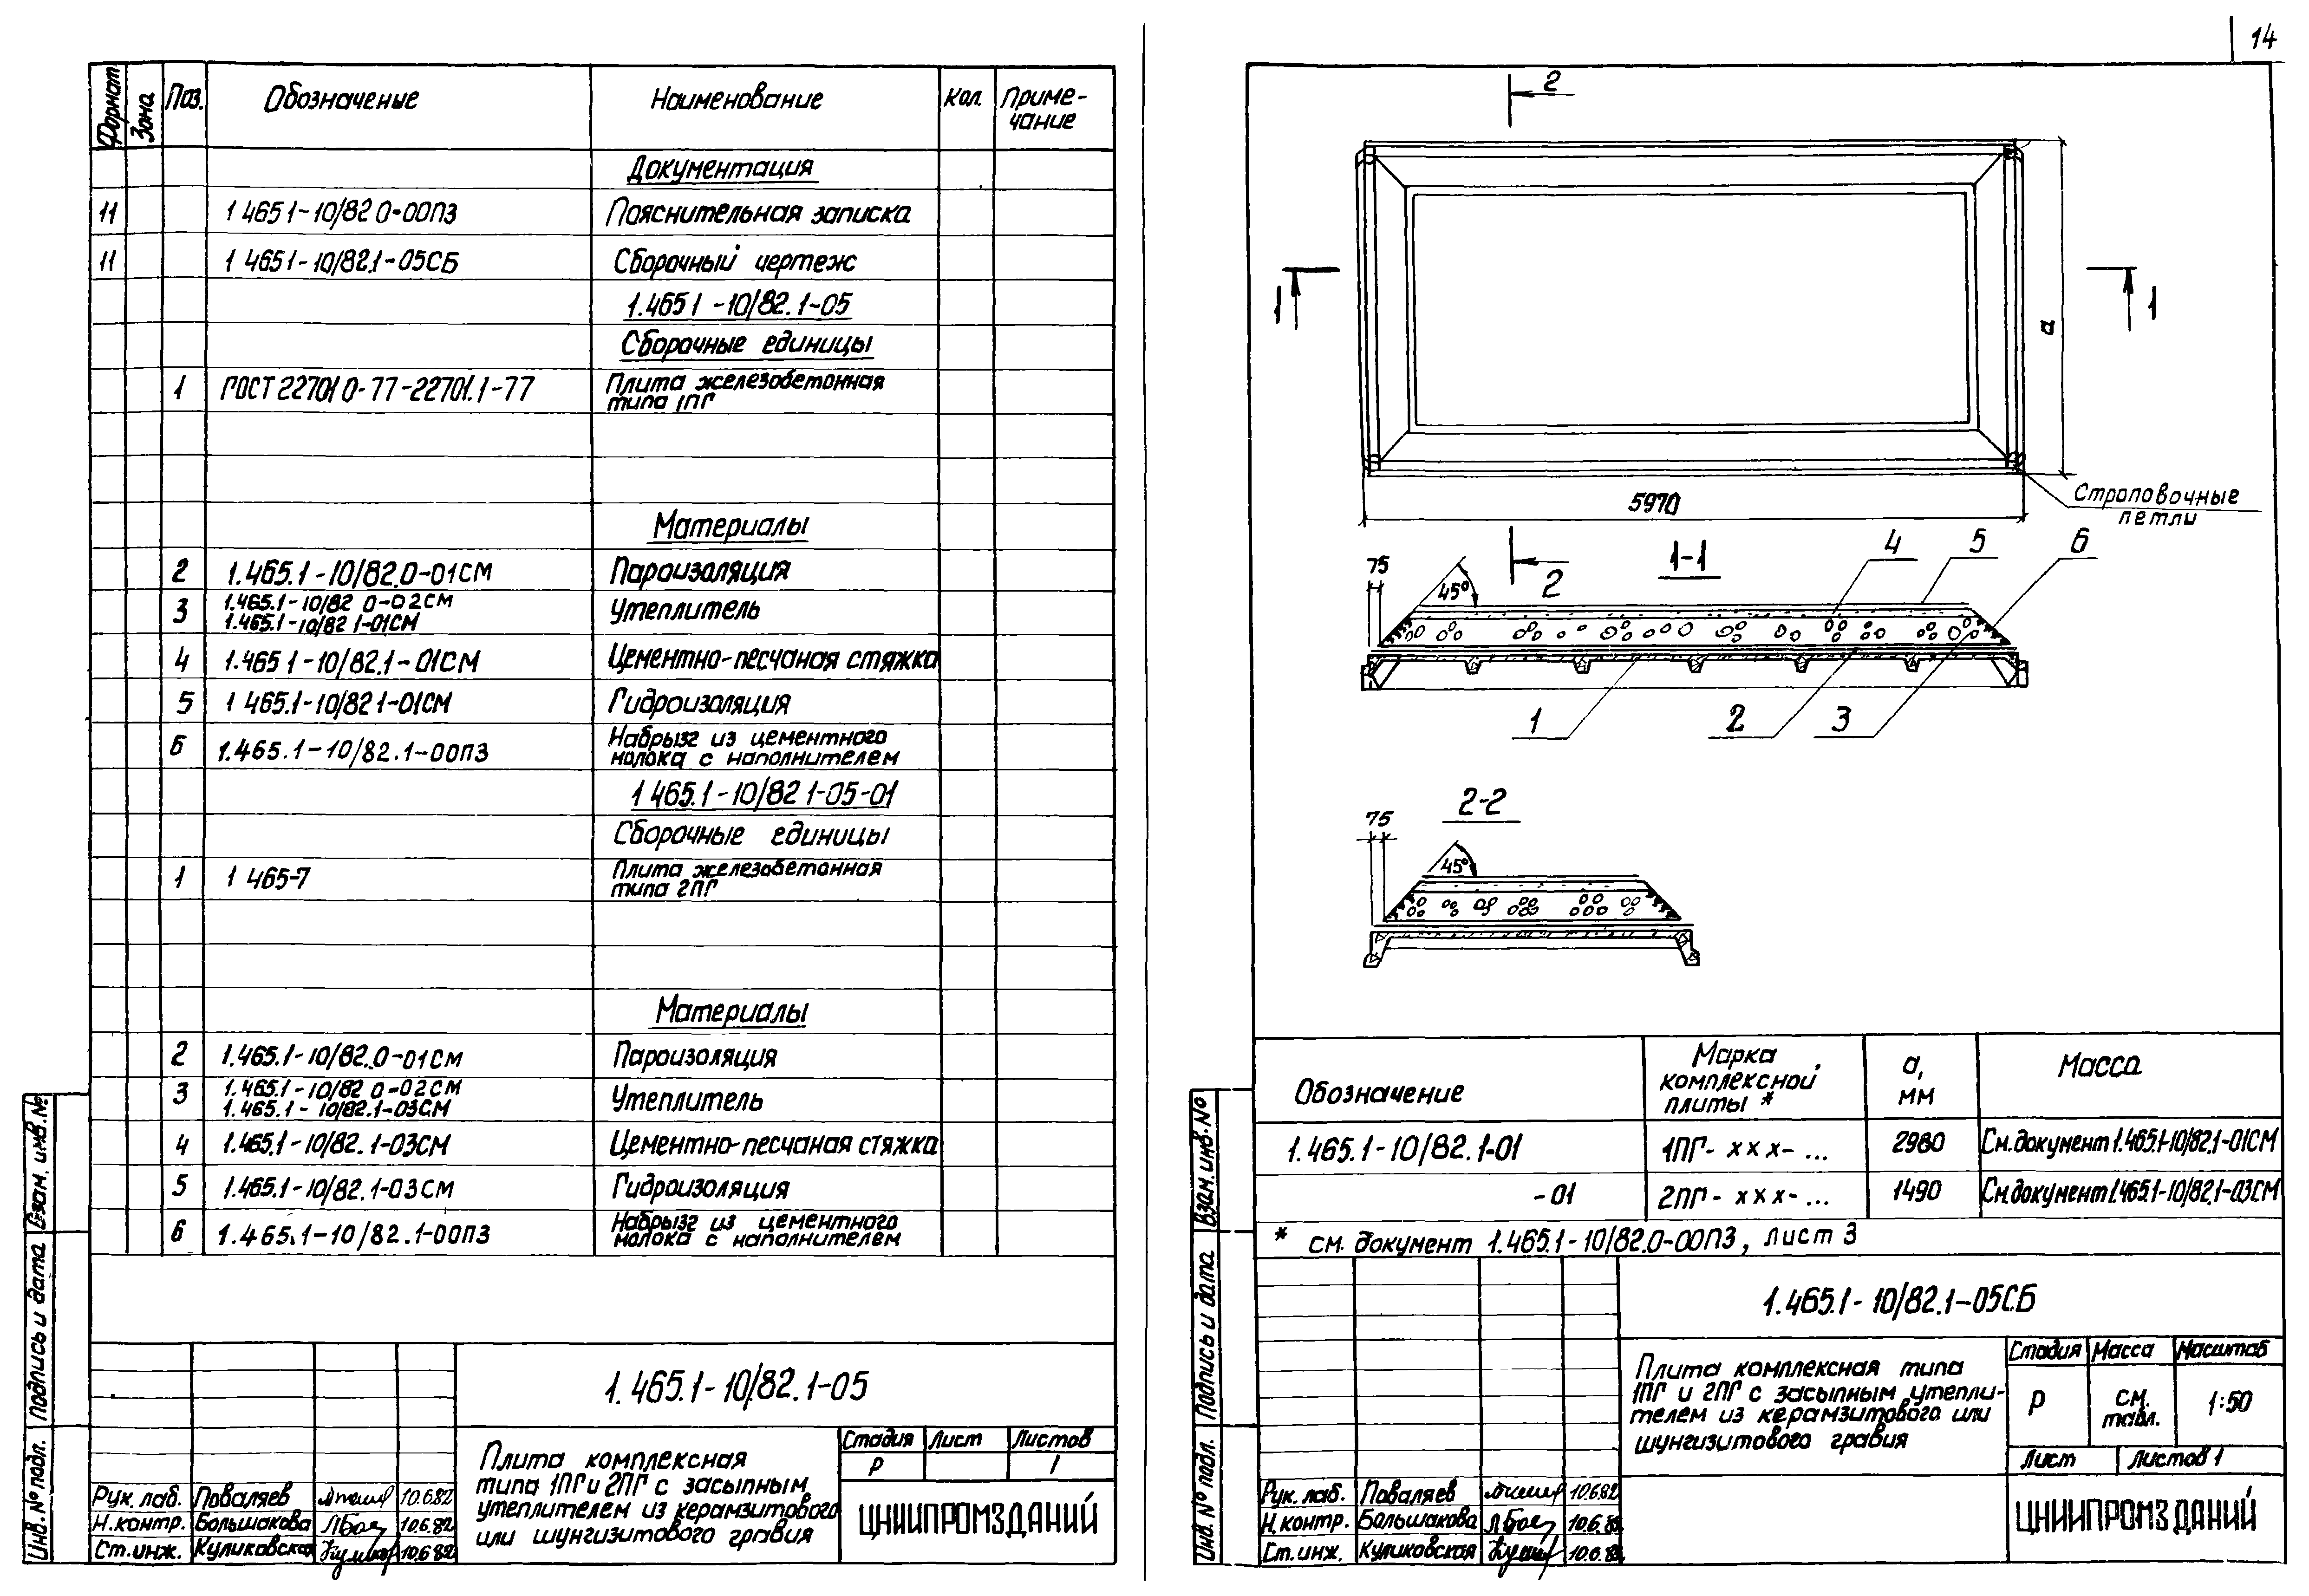 Формат
Зона
Поз.
Обозначение
Наименование
Кол.
Приме-
чание
Документация
11 1 465 1-10/82 0-00ПЗ Пояснительная записка
11 1 465 1-10/82.1-05СБ Сборочный чертеж
1.465 1-10/82.1-05
Сборочные единицы
1 ГОСТ 22701 0-77-22701.1-77 Плита железобетонная
типа 1ПГ
Материалы
2 1.465.1-10/82.0-01СМ Пароизоляция
3 1.465.1-10/82 0-02СМ Утеплитель
1.465.1-10/82 1-01СМ
4 1.465 1-10/82.1-01СМ Цементно-песчаная стяжка
5 1 465.1-10/82 1-01СМ Гидроизоляция
6 1.465.1-10/82.1-00ПЗ Набрызг из цементного
молока с наполнителем
1 465.1-10/82 1-05-01
Сборочные единицы
1 1 465-7 Плита железобетонная
типа 2ПГ
Материалы
2 1.465.1-10/82.0-01СМ Пароизоляция
3 1.465.1-10/82 0-02СМ Утеплитель
1.465.1-10/82.1-03СМ
4 1.465.1-10/82.1-03СМ Цементно-песчаная стяжка
5 1.465.1-10/82.1-03СМ Гидроизоляция
6 1.465.1-10/82.1-00ПЗ Набрызг из цементного
молока с наполнителем
1.465.1-10/82.1-05
Плита комплексная
типа 1ПГ и 2ПГ с засыпным
утеплителем из керамзитового
или шунгизитового гравия
Стадия Лист Листов
Р 1
ЦНИИПРОМЗДАНИЙ
Рук. лаб. Поваляев 10.6.82
Н.контр. Большакова 10.6.82
Ст.инж. Куликовская 10.6.82
Взам. инв. №
Подпись и дата
Инв. № подл.
14
2
1
1
а
5970
Строповочные
петли
2
1-1
75
45°
4
5
6
1
2
3
2-2
75
45°
Обозначение
Марка
комплексной
плиты *
а,
мм
Масса
1.465.1-10/82.1-01 1ПГ-ххх-... 2980 См. документ 1.465.1-10/82.1-01СМ
-01 2ПГ-ххх-... 1490 См.документ 1.465.1-10/82.1-03СМ
* см. документ 1.465.1-10/82.0-00ПЗ, лист 3
1.465.1-10/82.1-05СБ
Плита комплексная типа
1ПГ и 2ПГ с засыпным утепли-
телем из керамзитового или
шунгизитового гравия
Стадия Масса Масштаб
Р см.
табл. 1:50
Лист Листов 1
ЦНИИПРОМЗДАНИЙ
Рук. лаб. Поваляев 10.6.82
Н.контр. Большакова 10.6.82
Ст.инж. Куликовская 10.6.82
Взам. инв. №
Подпись и дата
Инв. № подл.